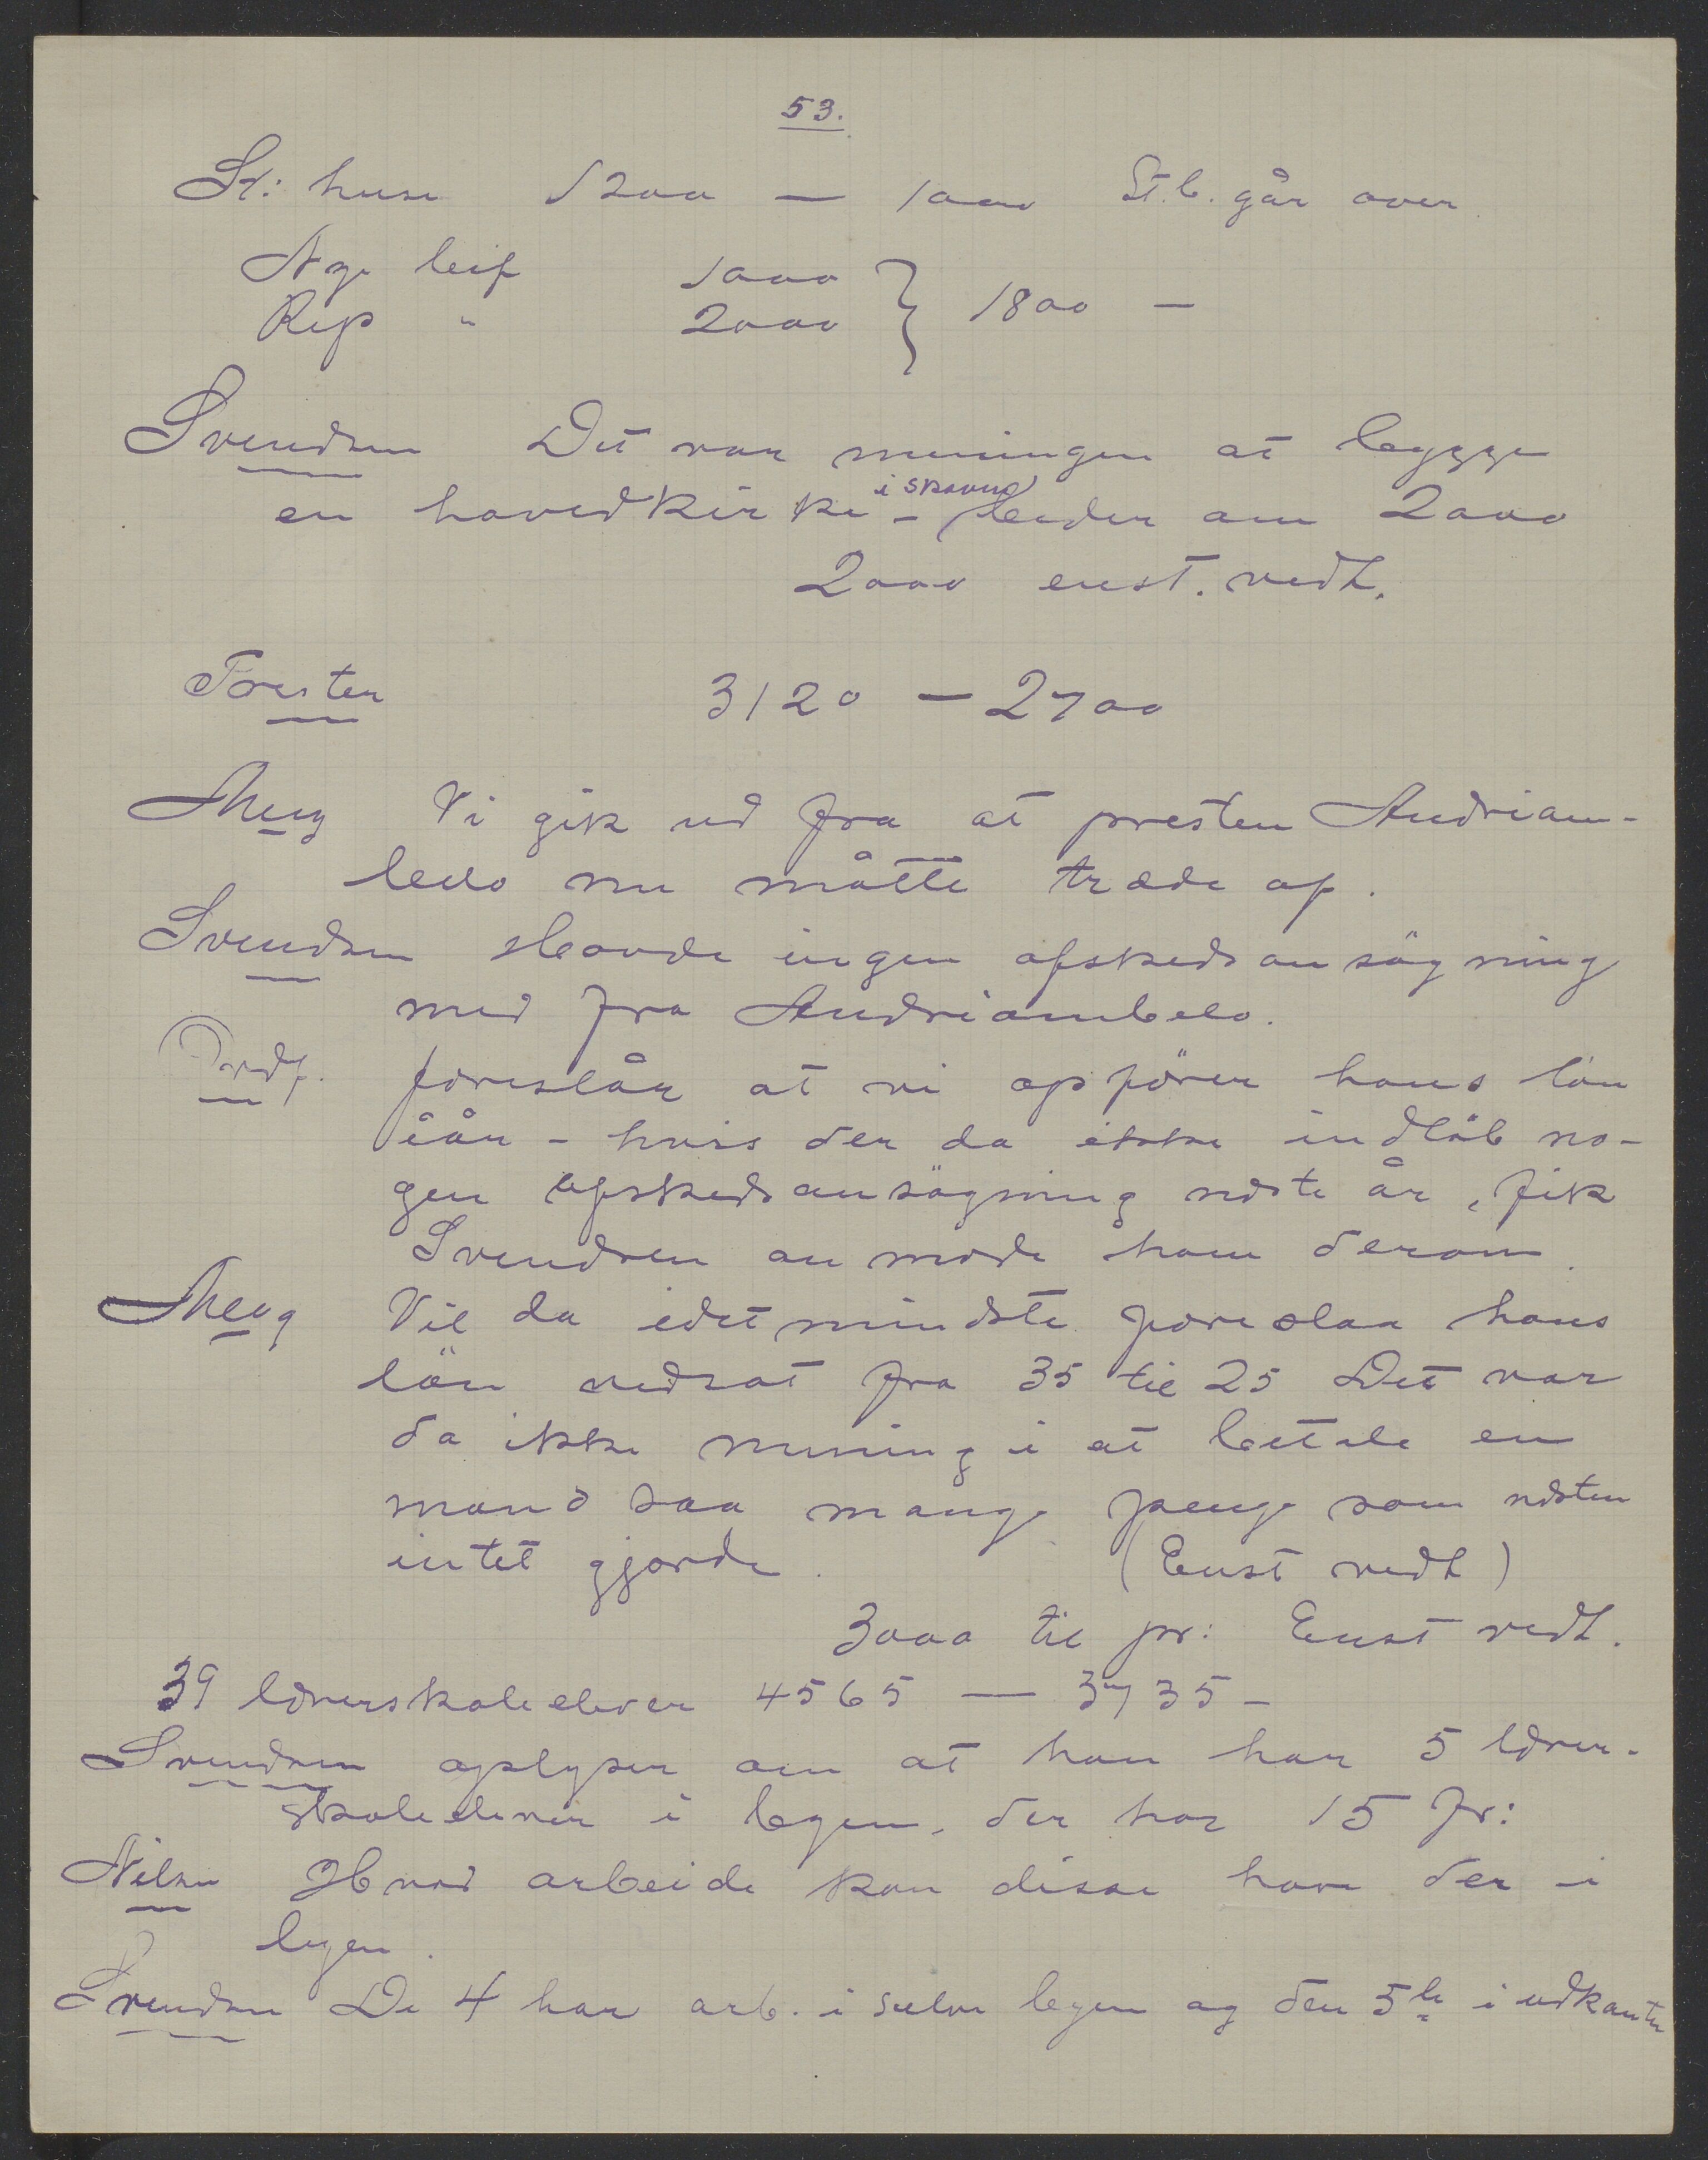 53.
St: huse 1200 — 1000 St. b. går over.
Nye leif 1000
Rep " 2000 } 1800 —
Svendsen Det var meningen at bygge
en hovedkirke i skoven – beder om 2000
2000 enst. vedt.
Prester 3120 — 2700
Meeg Vi gik ud fra at presten Andriam-
belo nu måtte træde af.
Svendsen Havde ingen afskedsansögning
med fra Andriambelo.
Ordf. foreslår at vi opförer hans lön
iår – hvis der da ikke indlöb no-
gen afskedsansögning næste år, fik
Svendsen anmode ham derom.
Meeg Vil da idetmindste foreslaa hans
lön nedsat fra 35 til 25 Det var
da ikke mening i at betale en
mand saa mange penge som næsten
intet gjorde. (Enst vedt)
3000 til pr: Enst vedt.
39 lærerskoleelever 4565 — 3735 –
Svendsen oplyser om at han har 5 lærer-
skoleelever i byen, der har 15 fr:
Nilsen Hvad arbeide kan disse have der i
byen.
Svendsen De 4 har arb. i selve byen og den 5te i udkanten